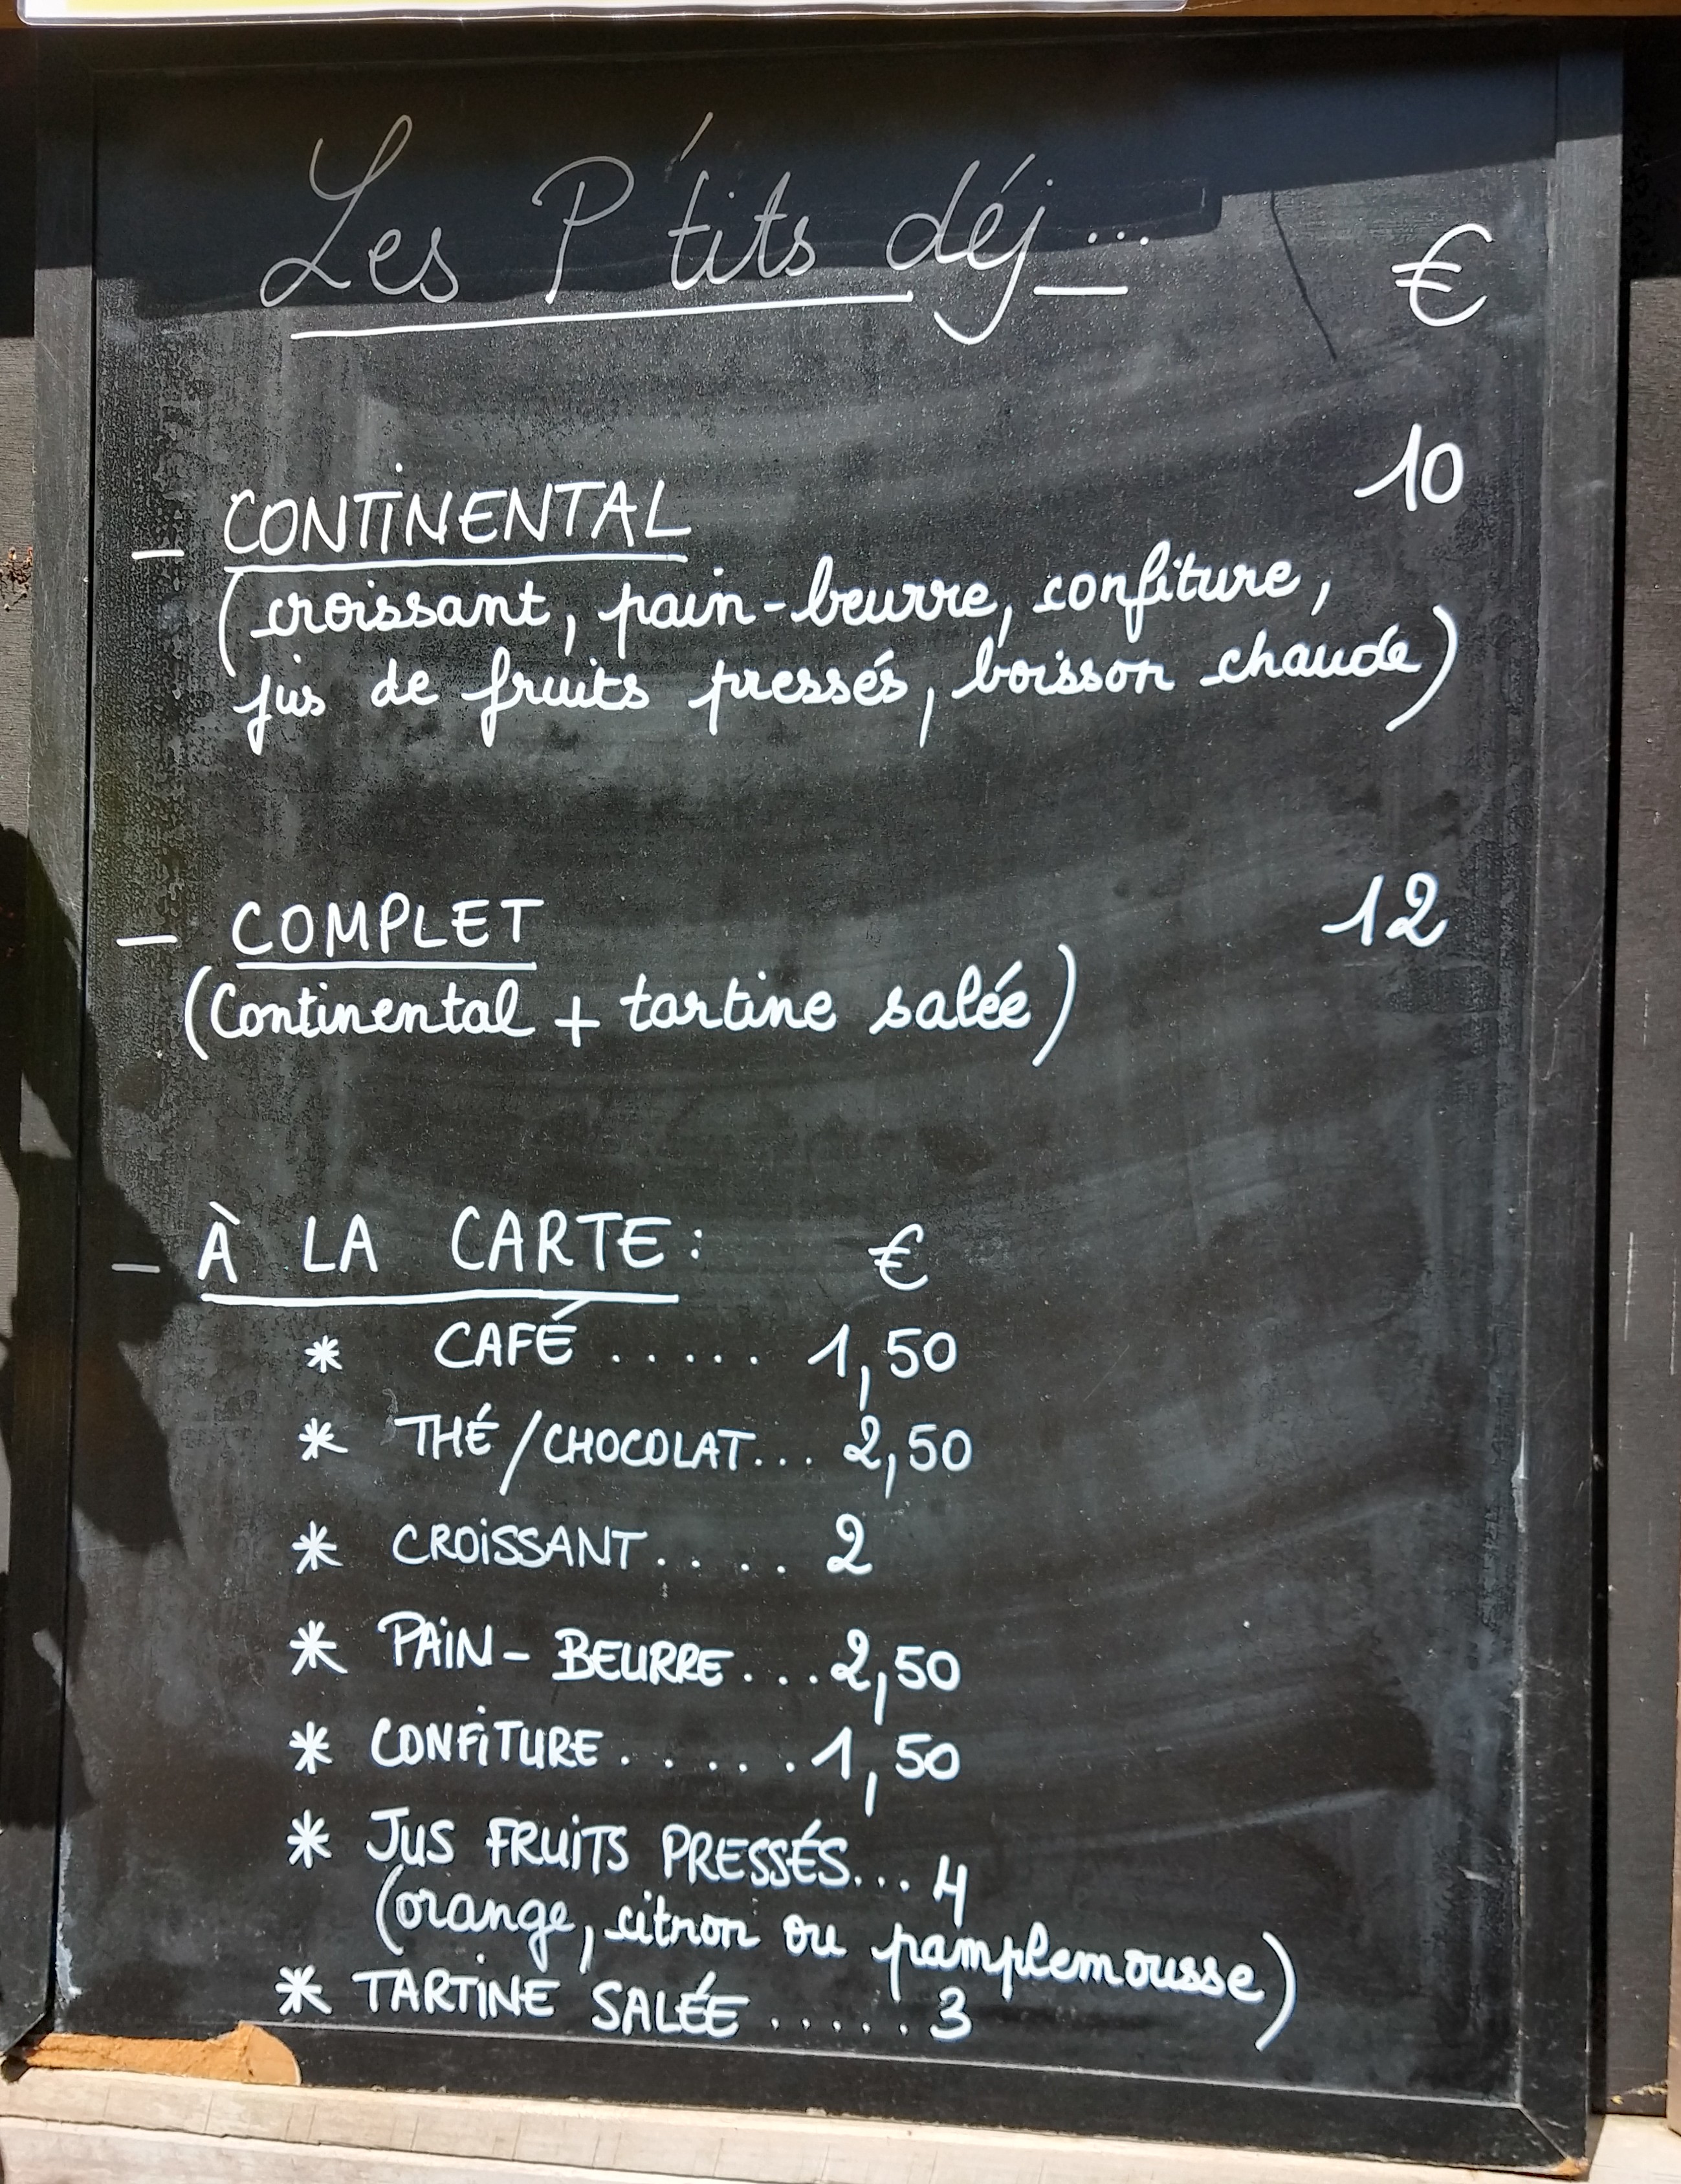 Les P'tits déj...
€
- CONTINENTAL 10
(croissant, pain-beurre, confiture,
jus de fruits pressés, boisson chaude)
- COMPLET 12
(Continental + tartine salée)
- À LA CARTE: €
* CAFÉ ..... 1,50
* THÉ/CHOCOLAT... 2,50
* CROISSANT..... 2
* PAIN-BEURRE....2,50
* CONFITURE......1,50
* JUS FRUITS PRESSÉS... 4
(orange, citron ou pamplemousse)
* TARTINE SALÉE ..... 3